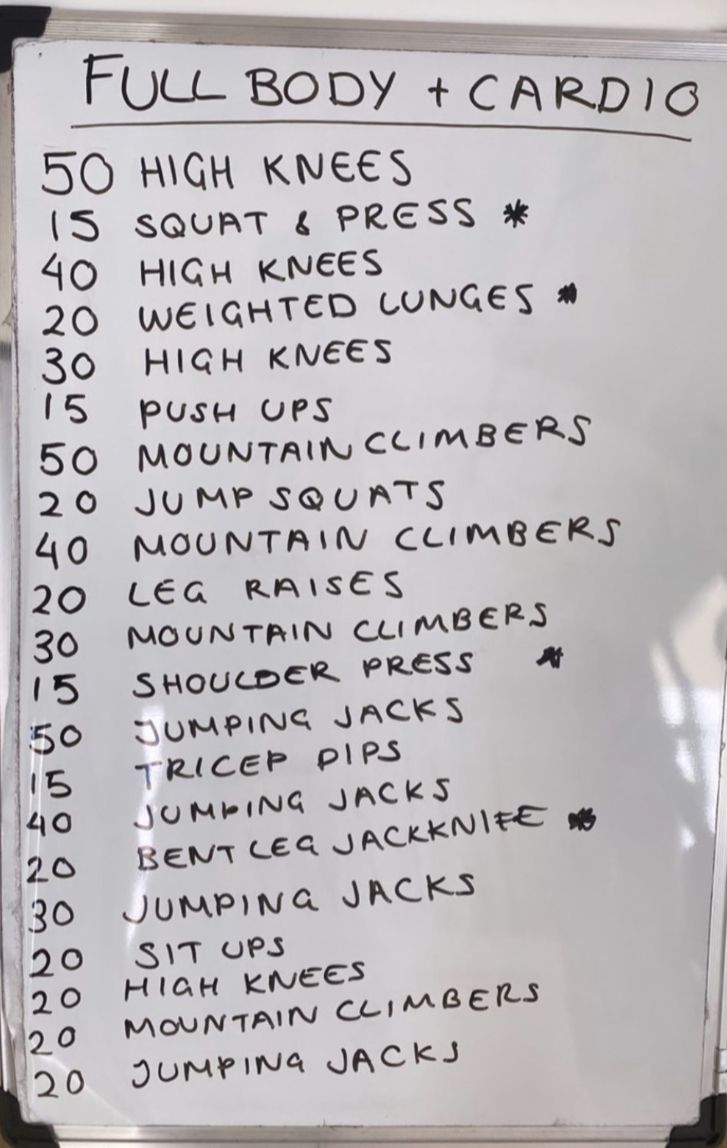 FULL BODY + CARDIO
50 HIGH KNEES
15 SQUAT & PRESS *
40 HIGH KNEES
20 WEIGHTED LUNGES *
30 HIGH KNEES
15 PUSH UPS
50 MOUNTAIN CLIMBERS
20 JUMP SQUATS
40 MOUNTAIN CLIMBERS
20 LEG RAISES
30 MOUNTAIN CLIMBERS
15 SHOULDER PRESS *
50 JUMPING JACKS
15 TRICEP DIPS
40 JUMPING JACKS
20 BENT LEG JACKKNIFE *
30 JUMPING JACKS
20 SIT UPS
20 HIGH KNEES
20 MOUNTAIN CLIMBERS
20 JUMPING JACKS